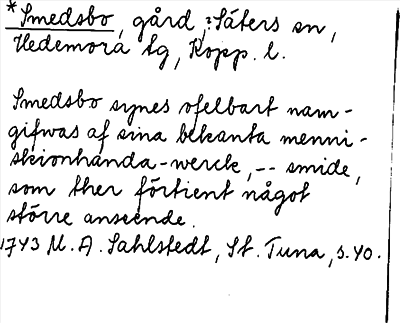 *Smedsbo, gård, ? Säters sn,
Hedemora tg, Kopp. l.
Smedsbo synes ofelbart nam-
gifwas af sina bekanta menni-
skionhanda-werck, -- smide,
som ther förtient något
större anseende.
1743 M. A. Sahlstedt, St. Tuna, s. 40.